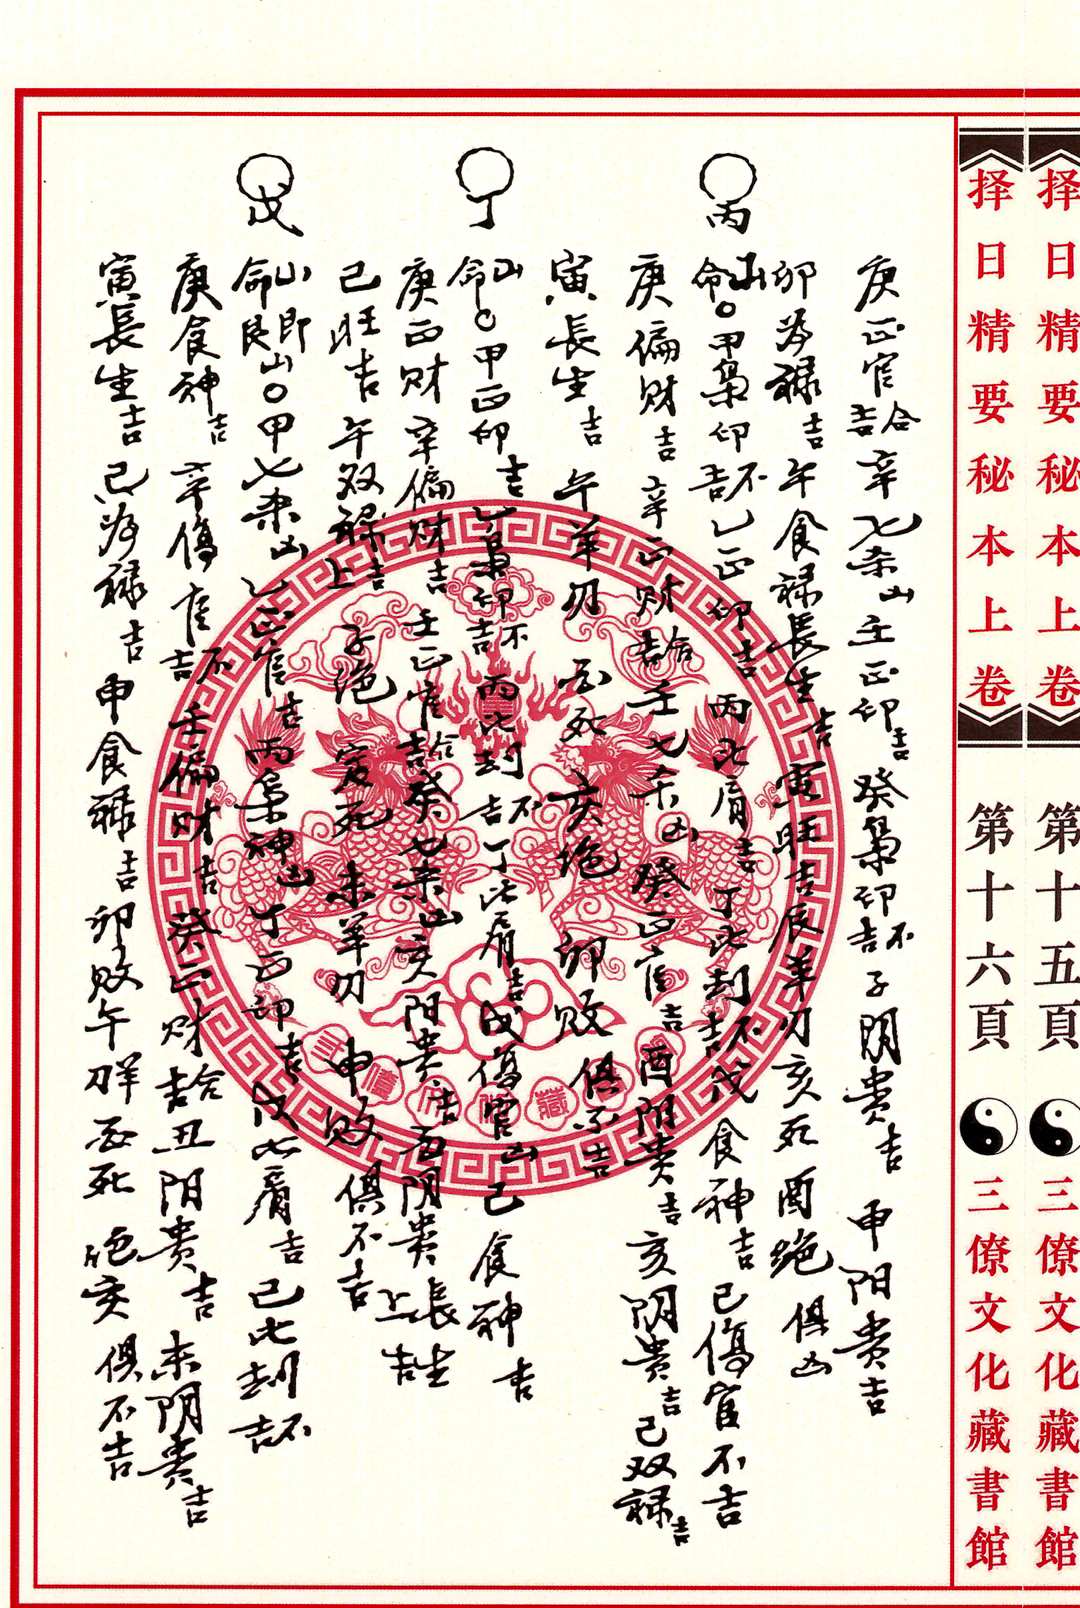 择日精要秘本上卷 第十五頁 三僚文化藏書館
择日精要秘本上卷 第十六頁 三僚文化藏書館
庚正官合吉辛七杀凶壬正印吉癸梟印不吉子阴贵吉申阳贵吉
卯为禄吉午食禄長生吉寅旺吉辰羊刃亥死酉绝俱凶
丙
山命〇甲梟印不吉乙正印吉丙比肩吉丁比刦不吉戊食神吉己傷官不吉
庚偏财吉辛正财合吉壬七杀凶癸正官吉酉阴贵吉亥阴贵吉己双禄吉
寅長生吉午羊刃酉死亥绝卯败俱不吉
丁
山命〇甲正印吉乙梟印不吉丙比刦不吉丁比肩吉戊傷官凶己食神吉
庚正财辛偏财吉壬正官合吉癸七杀凶亥阳贵吉酉阴贵長生上吉
己旺吉午双禄上吉子绝寅死未羊刃申败俱不吉
戊
山命即艮山〇甲七杀凶乙正官吉丙梟神凶丁正印吉戊比肩吉己比刦不吉
庚食神吉辛傷官不吉壬偏财吉癸正财合吉丑阳贵吉未阴贵吉
寅長生吉己为禄吉申食禄吉卯败午刀羊酉死绝亥俱不吉